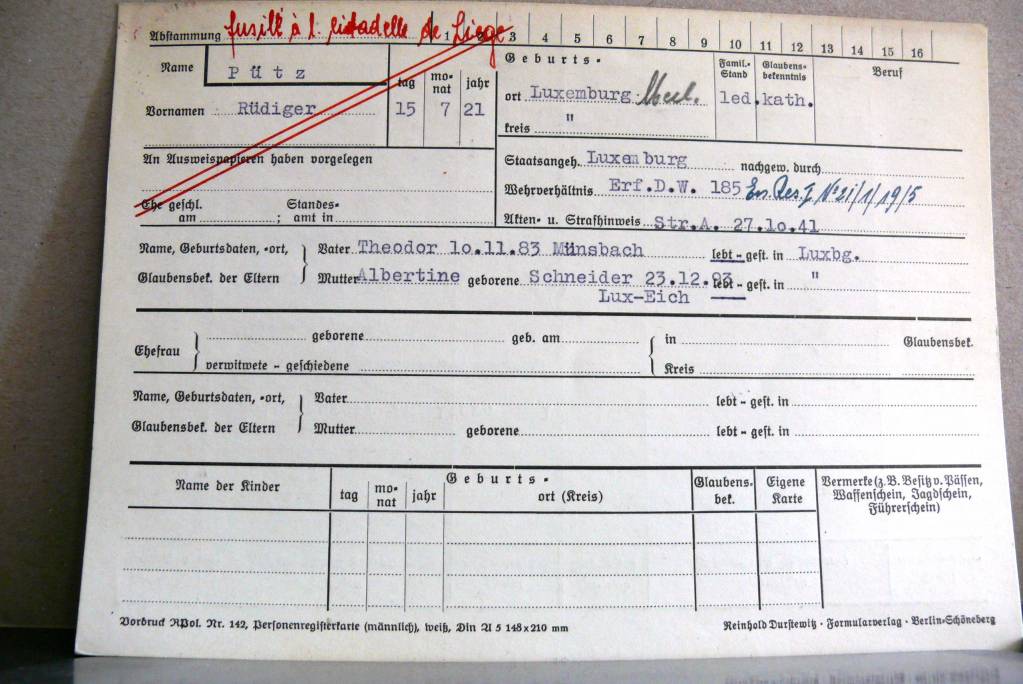 fusillé à l. citadelle de Liège
Abstammung 1 2 3 4 5 6 7 8 9 10 11 12 13 14 15 16
Name Pütz
tag mo-nat jahr
Vornamen Rüdiger 15 7 21
Geburts-
ort Luxemburg Merl.
kreis "
Famil.-Stand led.
Glaubens-bekenntnis kath.
Beruf
An Ausweispapieren haben vorgelegen
Ehe geschl. am ; Standes-amt in
Staatsangeh. Luxemburg nachgew. durch
Wehrverhältnis Erf.D.W. 185 Ers. Res. I N° 21/1/19/5
Akten- u. Strafhinweis Str.A. 27.10.41
Name, Geburtsdaten, -ort, Vater Theodor 10.11.83 Münsbach lebt - gest. in Luxbg.
Glaubensbek. der Eltern Mutter Albertine geborene Schneider 23.12.93 lebt - gest. in "
Lux-Eich
geborene geb. am in Glaubensbek.
Ehefrau
verwitwete - geschiedene Kreis
Name, Geburtsdaten, -ort, Vater lebt - gest. in
Glaubensbek. der Eltern Mutter geborene lebt - gest. in
Name der Kinder tag mo-nat jahr Geburts- ort (Kreis) Glaubens-bek. Eigene Karte
Vermerke (z. B. Besitz v. Pässen,
Waffenschein, Jagdschein,
Führerschein)
Vordruck RPol. Nr. 142, Personenregisterkarte (männlich), weiß, Din A 5 148 x 210 mm
Reinhold Durstewitz · Formularverlag · Berlin-Schöneberg